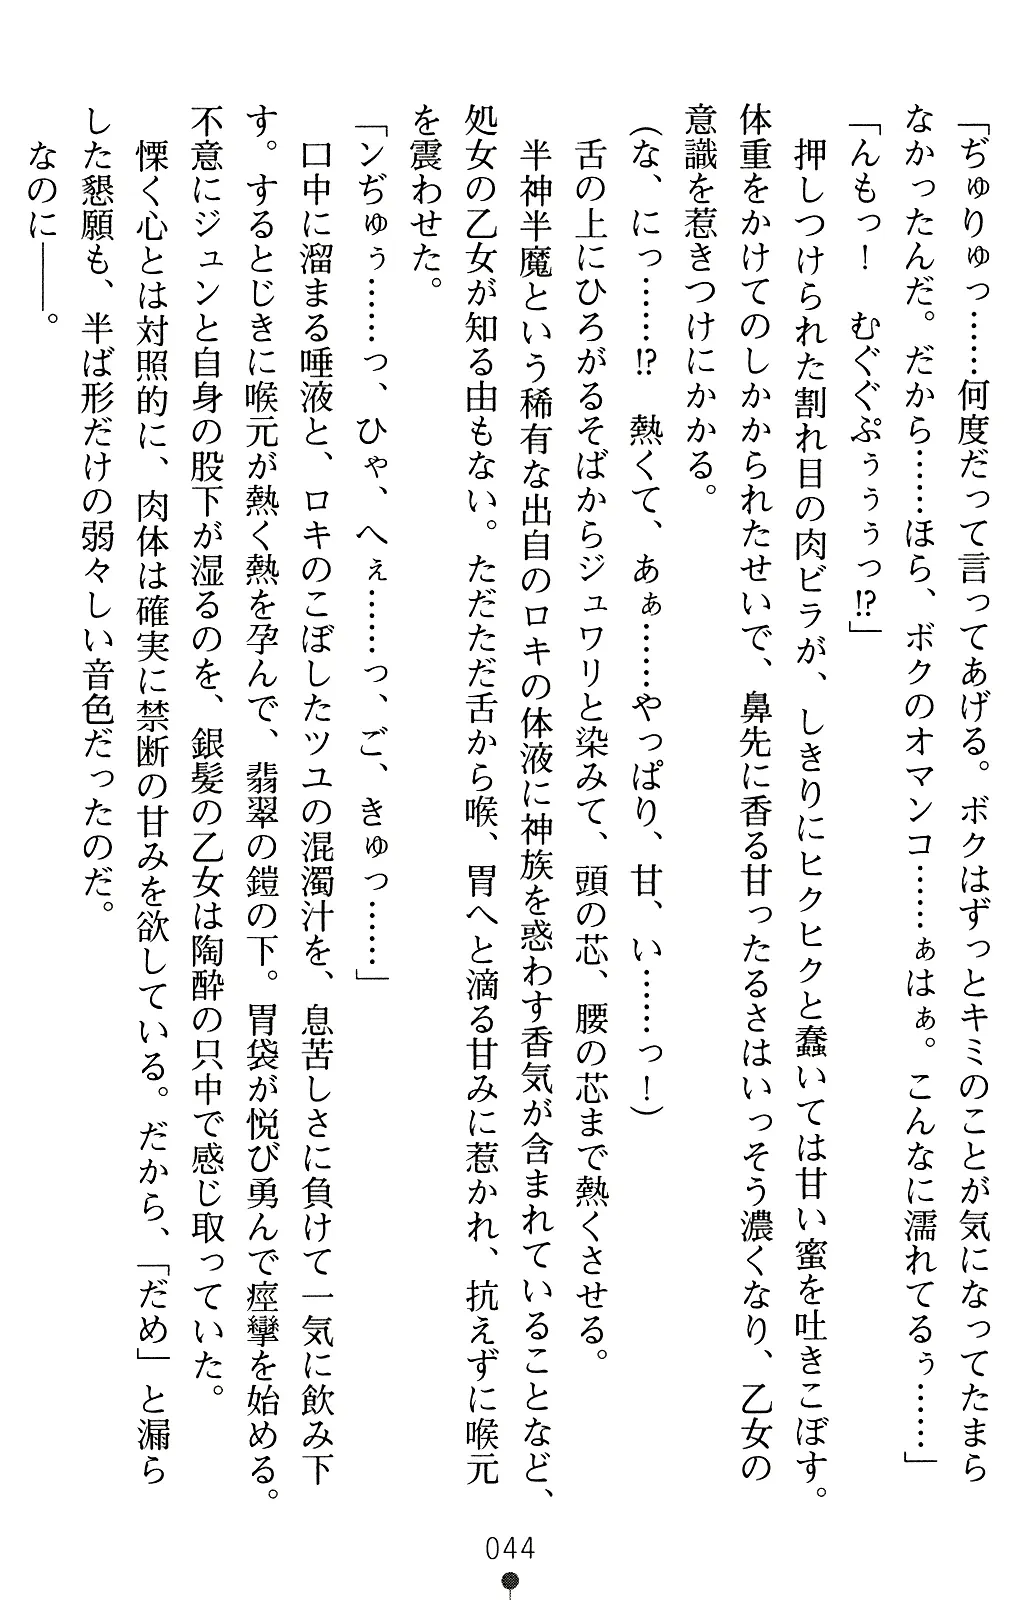 「ぢゅりゅっ……何度だって言ってあげる。ボクはずっとキミのことが気になってたまら
なかったんだ。だから……ほら、ボクのオマンコ……ぁはぁ。こんなに濡れてるぅ……」
「んもっ！　むぐぐぷぅぅぅっ!?」
　押しつけられた割れ目の肉ビラが、しきりにヒクヒクと蠢いては甘い蜜を吐きこぼす。
体重をかけてのしかかられたせいで、鼻先に香る甘ったるさはいっそう濃くなり、乙女の
意識を惹きつけにかかる。
（な、にっ……!?　熱くて、あぁ……やっぱり、甘、い……っ！）
　舌の上にひろがるそばからジュワリと染みて、頭の芯、腰の芯まで熱くさせる。
　半神半魔という稀有な出自のロキの体液に神族を惑わす香気が含まれていることなど、
処女の乙女が知る由もない。ただただ舌から喉、胃へと滴る甘みに惹かれ、抗えずに喉元
を震わせた。
「ンぢゅぅ……っ、ひゃ、へぇ……っ、ご、きゅっ……」
　口中に溜まる唾液と、ロキのこぼしたツユの混濁汁を、息苦しさに負けて一気に飲み下
す。するとじきに喉元が熱く熱を孕んで、翡翠の鎧の下。胃袋が悦び勇んで痙攣を始める。
不意にジュンと自身の股下が湿るのを、銀髪の乙女は陶酔の只中で感じ取っていた。
　慄く心とは対照的に、肉体は確実に禁断の甘みを欲している。だから、「だめ」と漏ら
した懇願も、半ば形だけの弱々しい音色だったのだ。
　なのに――。
044